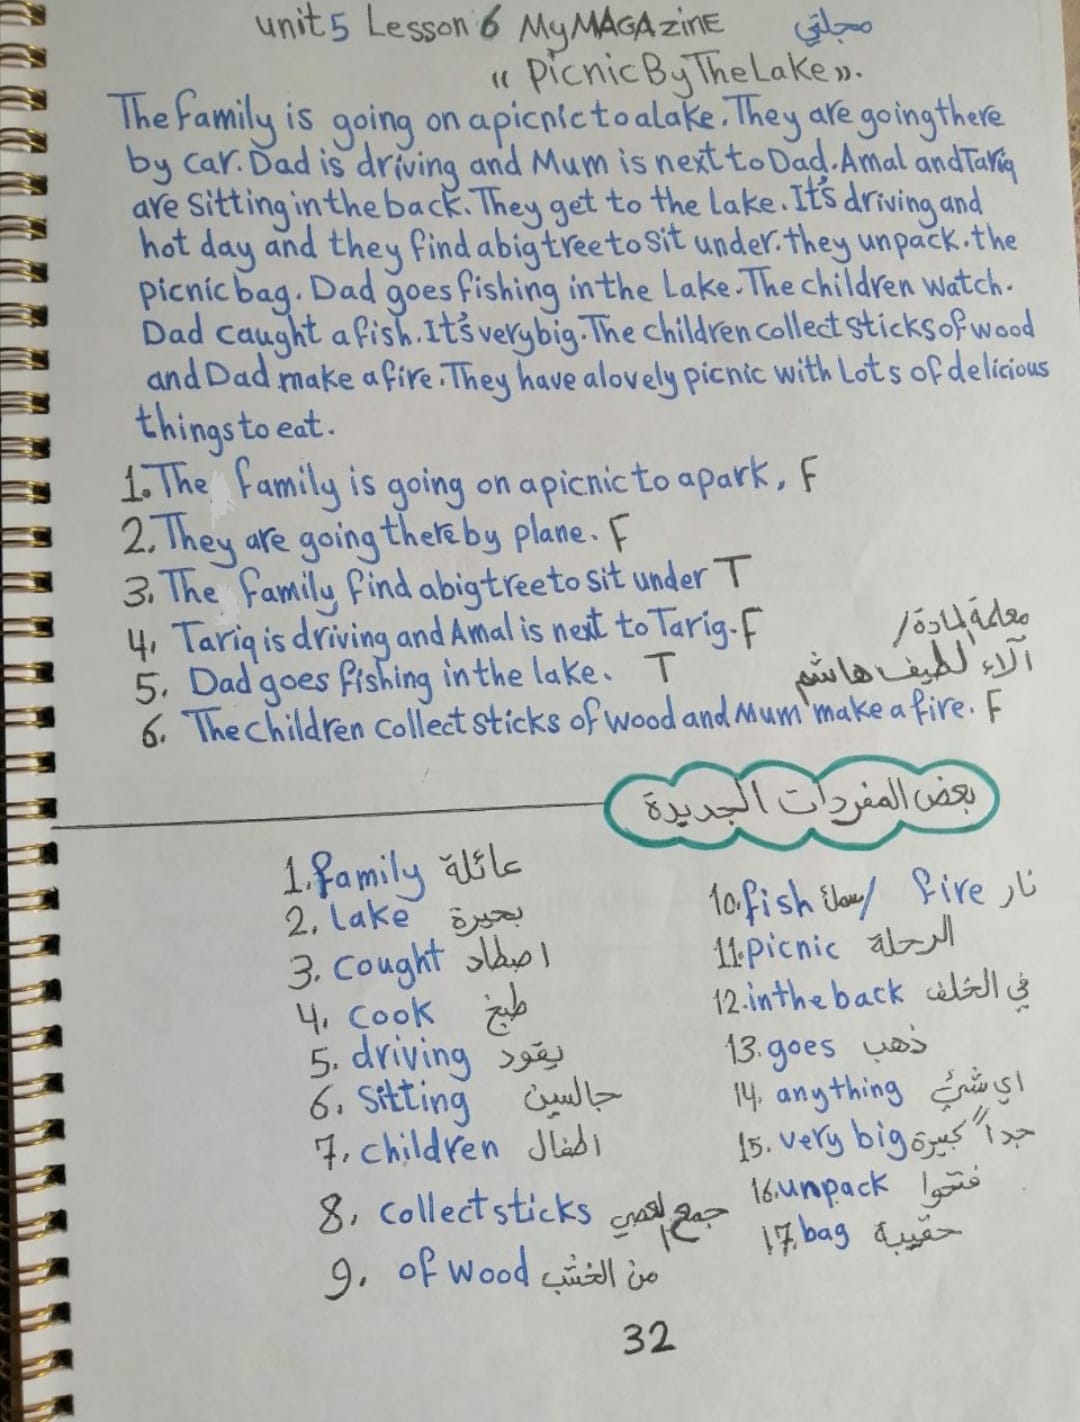 unit 5 Lesson 6 My MAGAzinE مجلتي
(( PicnicByTheLake )).
The family is going on a picnic to a lake. They are going there
by car. Dad is driving and Mum is next to Dad. Amal and Tariq
are sitting in the back. They get to the lake. It's driving and
hot day and they find a big tree to sit under. they unpack. the
picnic bag. Dad goes fishing in the Lake. The children watch.
Dad caught a fish. It's very big. The children collect sticks of wood
and Dad make a fire. They have a lovely picnic with Lots of delicious
things to eat.
1. The family is going on a picnic to a park, F
2. They are going there by plane. F
3. The family find a big tree to sit under T
4. Tariq is driving and Amal is next to Tarig. F
معلمة المادة/
5. Dad goes fishing in the lake. T
آلاء لطيف هاشم
6. The children collect sticks of wood and Mum make a fire. F
بعض المفردات الجديدة
1. family عائلة
2. lake بحيرة
3. cought اصطاد
4. cook طبخ
5. driving يقود
6. sitting جالسين
7. children اطفال
8. collect sticks جمع العصي
9. of wood من الخشب
10. fish سمك / fire نار
11. picnic الرحلة
12. in the back في الخلف
13. goes ذهب
14. anything اي شئ
15. very big كبيرة جداً
16. unpack فتحوا
17. bag حقيبة
32